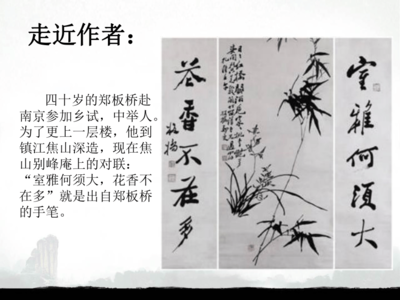 走近作者：
四十岁的郑板桥赴
南京参加乡试，中举人。
为了更上一层楼，他到
镇江焦山深造，现在焦
山别峰庵上的对联：
“室雅何须大，花香不
在多”就是出自郑板桥
的手笔。
室雅何须大
花香不在多
板桥